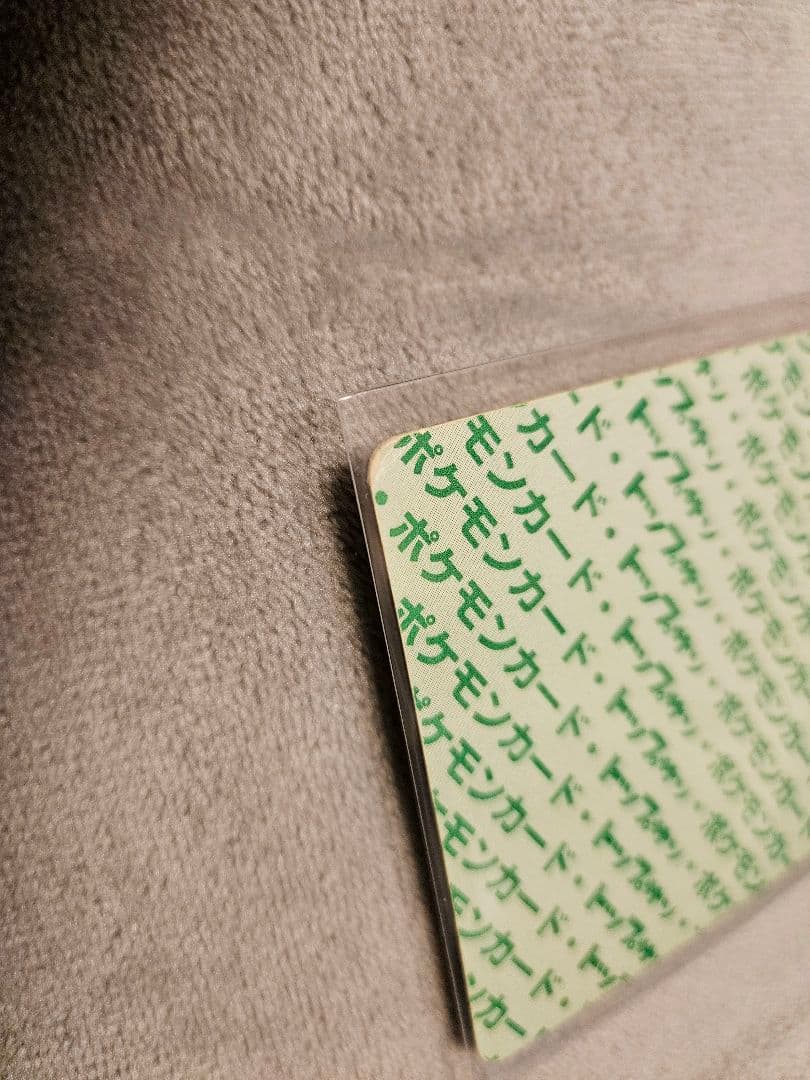 ド・トップサン・ポケモン
カード・トップサン・ポケモンカ
モンカード・トップサン・ポケモンカー
ポケモンカード・トップサン・ポケモンカー
・ポケモンカード・トップサン・ポケモン
ポケモンカード・トップサン・ポケ
ポケモンカード・トップサン
ケモンカード・トップ
モンカード・
ンカー